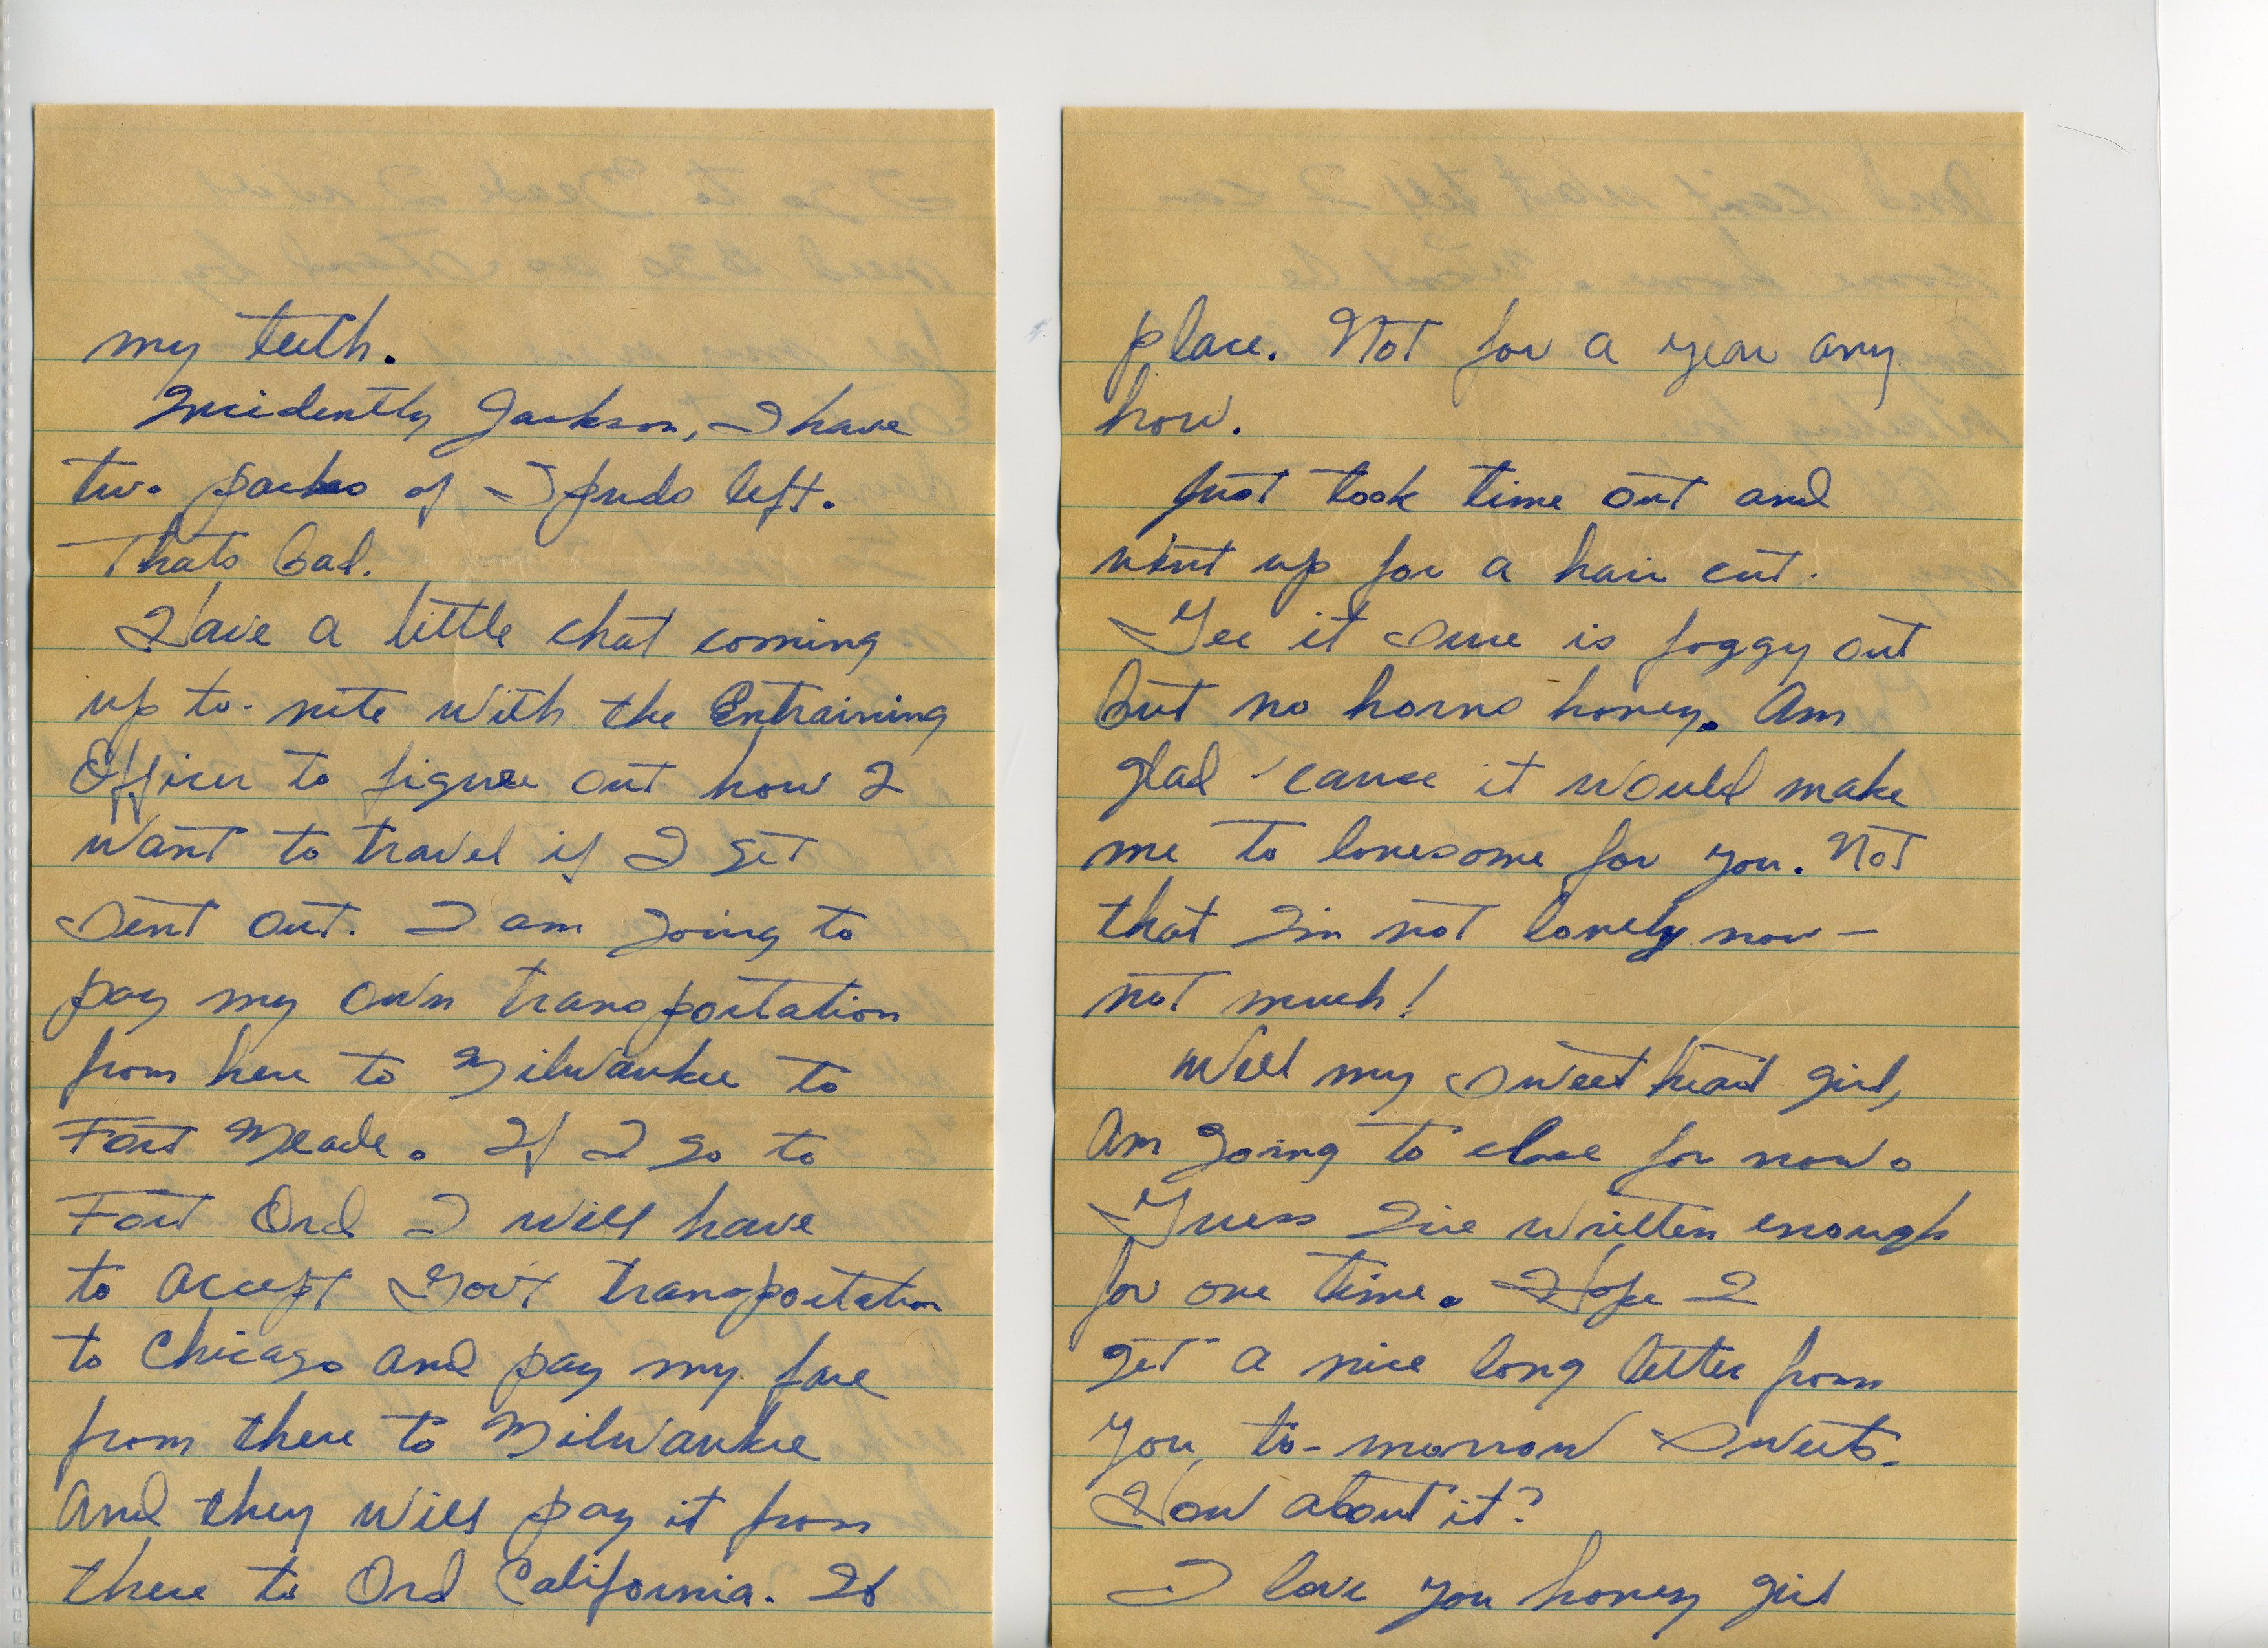 my teeth.
Incidently Jackson, I have
two packs of Spuds left.
Thats bad.
Have a little chat coming
up to-nite with the Entraining
Officer to figure out how I
want to travel if I get
sent out. I am going to
pay my own transportation
from here to Milwaukee to
Fort Meade. If I go to
Fort Ord I will have
to accept Gov't transportation
to Chicago and pay my fare
from there to Milwaukee
and they will pay it from
there to Ord California. If
place. Not for a year any
how.
Just took time out and
went up for a hair cut.
Gee it sure is foggy out
but no horns honey. Am
glad 'cause it would make
me to lonesome for you. Not
that I'm not lonely now—
not much!
Well my sweet heart girl,
am going to close for now.
Guess I've written enough
for one time. Hope I
get a nice long letter from
you, to-morrow sweets.
How about it?
I love you honey girl